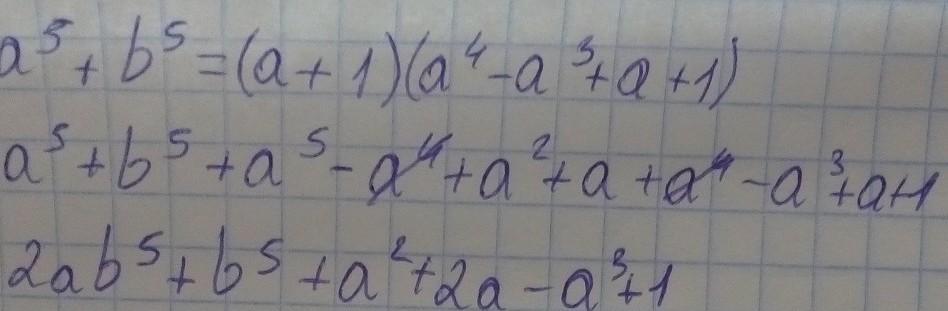 a⁵ + b⁵ = (a + 1)(a⁴ - a³ + a + 1)
a⁵ + b⁵ + a⁵ - a⁴ + a² + a + a⁴ - a³ + a + 1
2ab⁵ + b⁵ + a² + 2a - a³ + 1